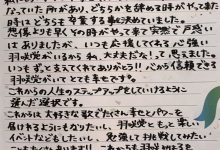 ていた所があり、どちらかを辞める時がやってきた
時はどちらも卒業する事に決めていました。
想像よりも早くその時がやって来て突然で戸惑い
はありましたが、いつも応援してくれる心強い
羽咲党がいるから私、大丈夫だな!って思えました。
いつもずっと支えてくれてありがとう!!心から信頼できる
羽咲党がいてとても幸せです。
これからの人生のステップアップとしていけるように
選んだ選択です。
これからは大好きな歌でたくさん幸せとパワーを
届けれるようにもなりたいし、羽咲党ともっと楽しい
イベントなどもしたいし、勉強して挑戦してみたい